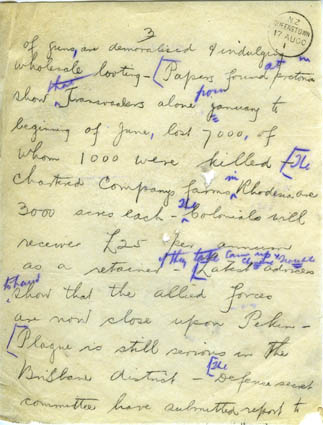 3
N.Z
QUEENSTOWN
17 AU 00
1
of guns, are demoralised & indulging in
wholesale looting - [Papers found at Pretoria
show that Transvaalers alone from January to
begining of June, lost 7000, of
whom 1000 were killed [The
chartered Companys farms in Rhodesia are
3000 acres each - The Colonials will
receive £25 per annum
as a retainer if they take
up
[Latest advices
to hand show that the allied forces
are now close upon Pekin -
[Plague is still serious in the
Brisbane district - [The Defence secret
committee have submitted report to